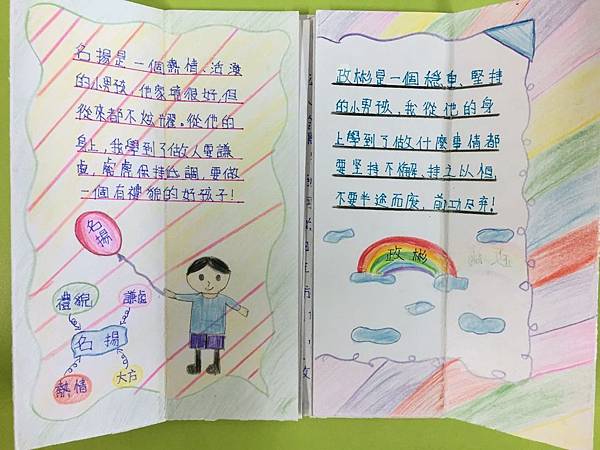 名揚是一個熱情、活潑
的小男孩，他家境很好，但
從來都不炫耀。從他的
身上，我學到了做人要謙
虛，處處保持低調，要做
一個有禮貌的好孩子！
名揚
禮貌
謙虛
名揚
熱情
大方
政彬是一個穩重、堅持
的小男孩，我從他的身
上學到了做什麼事情都
要堅持不懈、持之以恆，
不要半途而廢，前功尽棄！
政彬